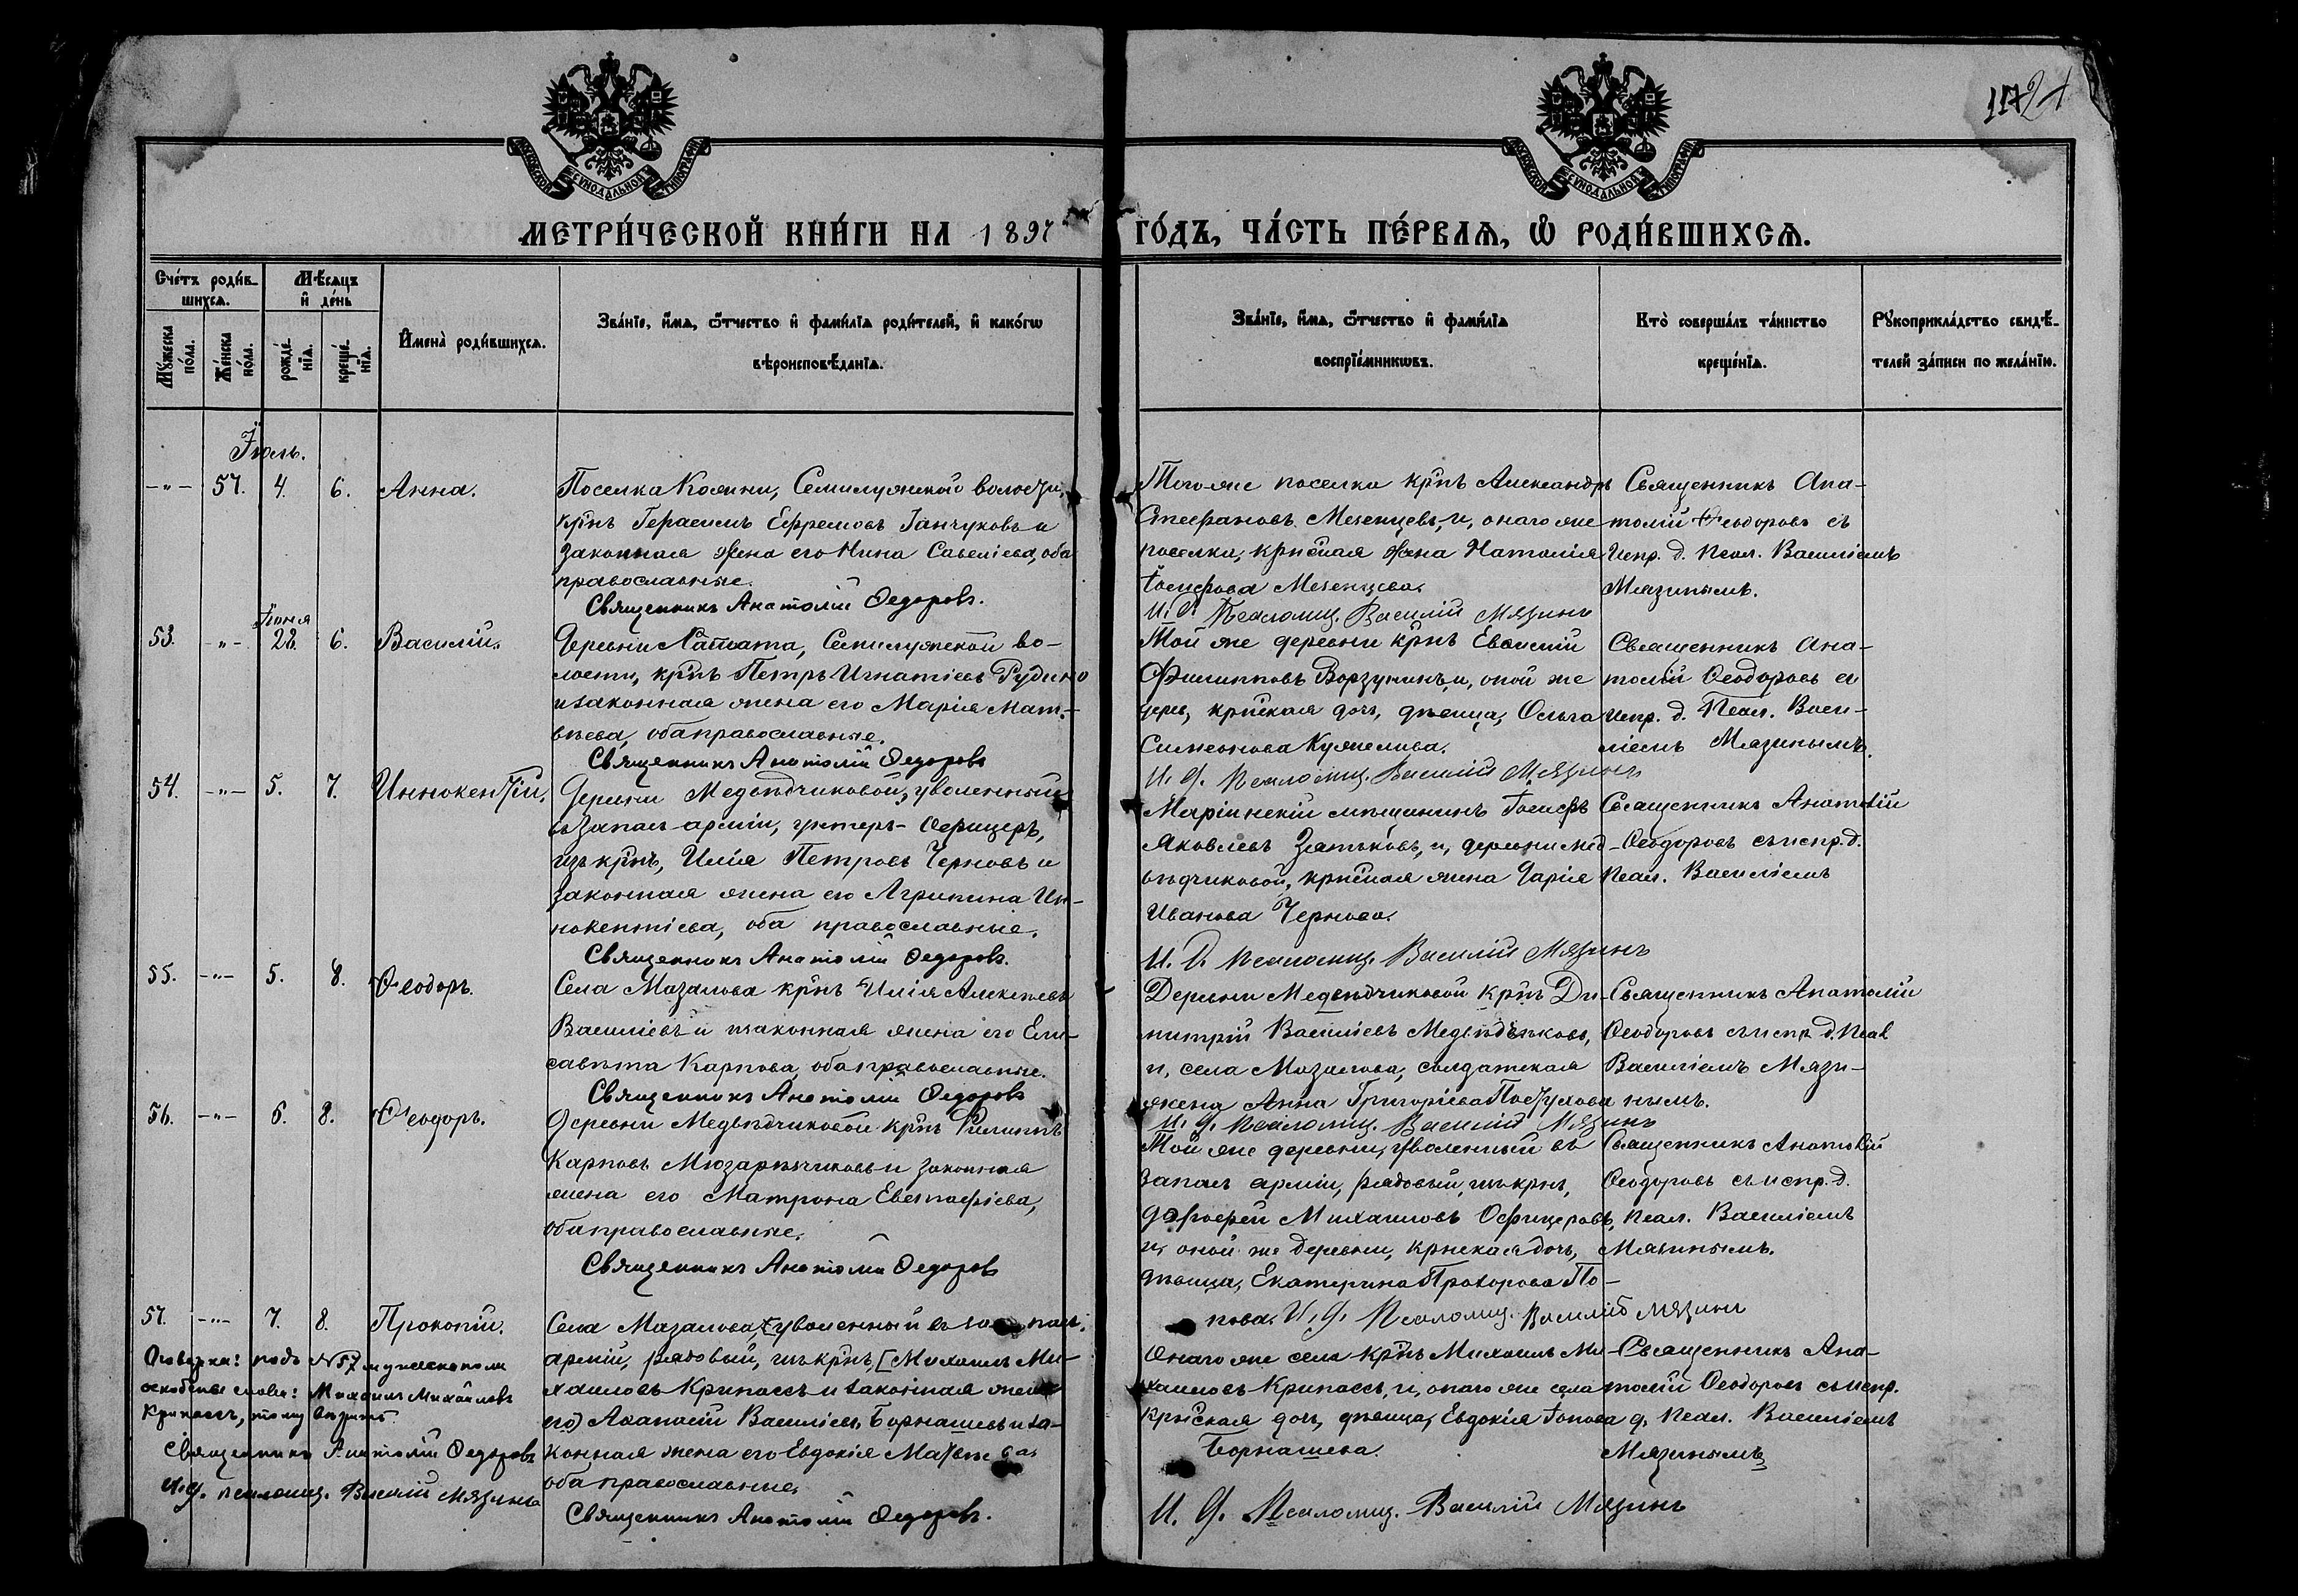 1172
МОСКОВСКОЙ СѴНОДАЛЬНОЙ ТИПОГРАФІИ
МОСКОВСКОЙ СѴНОДАЛЬНОЙ ТИПОГРАФІИ
МЕТРИ́ЧЕСКОЙ КНИ́ГИ НА 1897 ГО́ДЪ, ЧА́СТЬ ПЕ́РВАѦ, Ѡ҆ РОДИ́ВШИХСѦ.
Сче́тъ роди́в-
шихсѧ.
Мѣ́сѧцъ
и҆ де́нь
Мꙋ́жеска по́ла.
Же́нска по́ла.
рожде́нїѧ.
креще́нїѧ.
И҆мена̀ роди́вшихсѧ.
Зва́нїе, и҆́мѧ, ѻ҆́тчество и҆ фами́лїѧ роди́телей, и҆ како́гѡ
вѣроисповѣ́данїѧ.
Зва́нїе, и҆́мѧ, ѻ҆́тчество и҆ фами́лїѧ
воспрїе́мникѡвъ.
Кто̀ соверша́лъ та́инство
креще́нїѧ.
Рꙋкоприкла́дство свидѣ́-
телей за́писи по жела́нїю.
Іюль.
-"- 57. 4. 6. Анна.
Поселка Коянни, Семилужской волости,
крнъ Герасимъ Ефремовъ Ганчуковъ и
законная жена его Нина Савеліева, оба
православные.
Священникъ Анатолій Ѳедоровъ.
Того же поселка крнъ Александръ
Стефановъ Мезенцевъ, и, онаго же
поселка, крнская жена Наталія
Іосифова Мезенцева.
И. д. Псаломщ. Василій Мязинъ
Священникъ Ана-
толій Ѳеодоровъ съ
Испр. д. Псал. Василіемъ
Мязинымъ.
Іюня
53. -"- 28. 6. Василій.
Деревни Латата, Семилужской во-
лости, крнъ Петръ Игнатіевъ Рудино
и законная жена его Марія Мат-
вѣева, оба православные.
Священникъ Анатолій Ѳедоровъ
Той же деревни крнъ Евѳимій
Филипповъ Ворзунинъ, и, оной же
дерев, крнская дочь, дѣвица, Ольга
Симеонова Кужелива.
И. д. Псаломщ. Василій Мязинъ
Священникъ Ана-
толій Ѳеодоровъ съ
Испр. д. Псал. Васи-
ліемъ Мязинымъ.
54. -"- 5. 7. Иннокентій.
Деревни Медвѣдчиковой, уволенный
въ запасъ арміи, унтеръ-офицеръ,
изъ крнъ, Илія Петровъ Черновъ и
законная жена его Агрипина Ин-
нокентіева, оба православные.
Священникъ Анатолій Ѳедоровъ.
Маріинскій мѣщанинъ Іосифъ
Яковлевъ Затьковъ, и, деревни Мед-
вѣдчиковой, крнская жена Дарія
Иванова Чернова.
И. д. Псаломщ. Василій Мязинъ
Священникъ Анатолій
Ѳеодоровъ съ испр. д.
Псал. Василіемъ
55. -"- 5. 8. Ѳеодоръ.
Села Мазалова крнъ Илія Алексѣевъ
Василіевъ и законная жена его Ели-
савѣта Карпова, оба православные.
Священникъ Анатолій Ѳедоровъ
Деревни Медвѣдчиковой крнъ Ди-
митрій Василіевъ Медвѣдчиковъ,
и, села Мазалова, солдатская
жена Анна Григоріева Постухова
И. д. Псаломщ. Василій Мязинъ
Священникъ Анатолій
Ѳеодоровъ съ испр. д. Псал
Василіемъ Мязи-
нымъ.
56. -"- 6. 8. Ѳеодоръ.
Деревни Медвѣдчиковой крнъ Филиппъ
Карповъ Мюзарѣчиковъ и законная
жена его Матрона Евстафіева,
оба православные.
Священникъ Анатолій Ѳедоровъ
Той же деревни, уволенный въ
запасъ арміи, рядовый, изъ крнъ,
Дорофей Михаиловъ Офицеровъ,
и, оной же деревни, крнская дочь,
дѣвица, Екатерина Прохорова По-
пова. И. д. Псаломщ. Василій Мязинъ
Священникъ Анатолій
Ѳеодоровъ съ испр. д.
Псал. Василіемъ
Мязинымъ.
57. -"- 7. 8. Прокопій.
Села Мазалова, уволенный въ запасъ
арміи, рядовый, изъ крнъ, [Михаилъ Ми-
хаиловъ Крипассъ и законная жена
его] Аѳанасій Василіевъ Борнашевъ и за-
конная жена его Евдокія Матвѣева,
оба православные.
Священникъ Анатолій Ѳедоровъ.
Оговорка: подъ №57 мужеска пола
въ скобкѣ слова: Михаилъ Михаиловъ
Крипассъ, тому вѣрить.
Священникъ Анатолій Ѳедоровъ
И. д. псаломщ. Василій Мязинъ
Онаго же села крнъ Михаилъ Ми-
хаиловъ Крипассъ, и, онаго же села
крнская дочь, дѣвица, Евдокія Іонова
Борнашева.
И. д. Псаломщ. Василій Мязинъ
Священникъ Ана-
толій Ѳеодоровъ съ испр.
д. Псал. Василіемъ
Мязинымъ